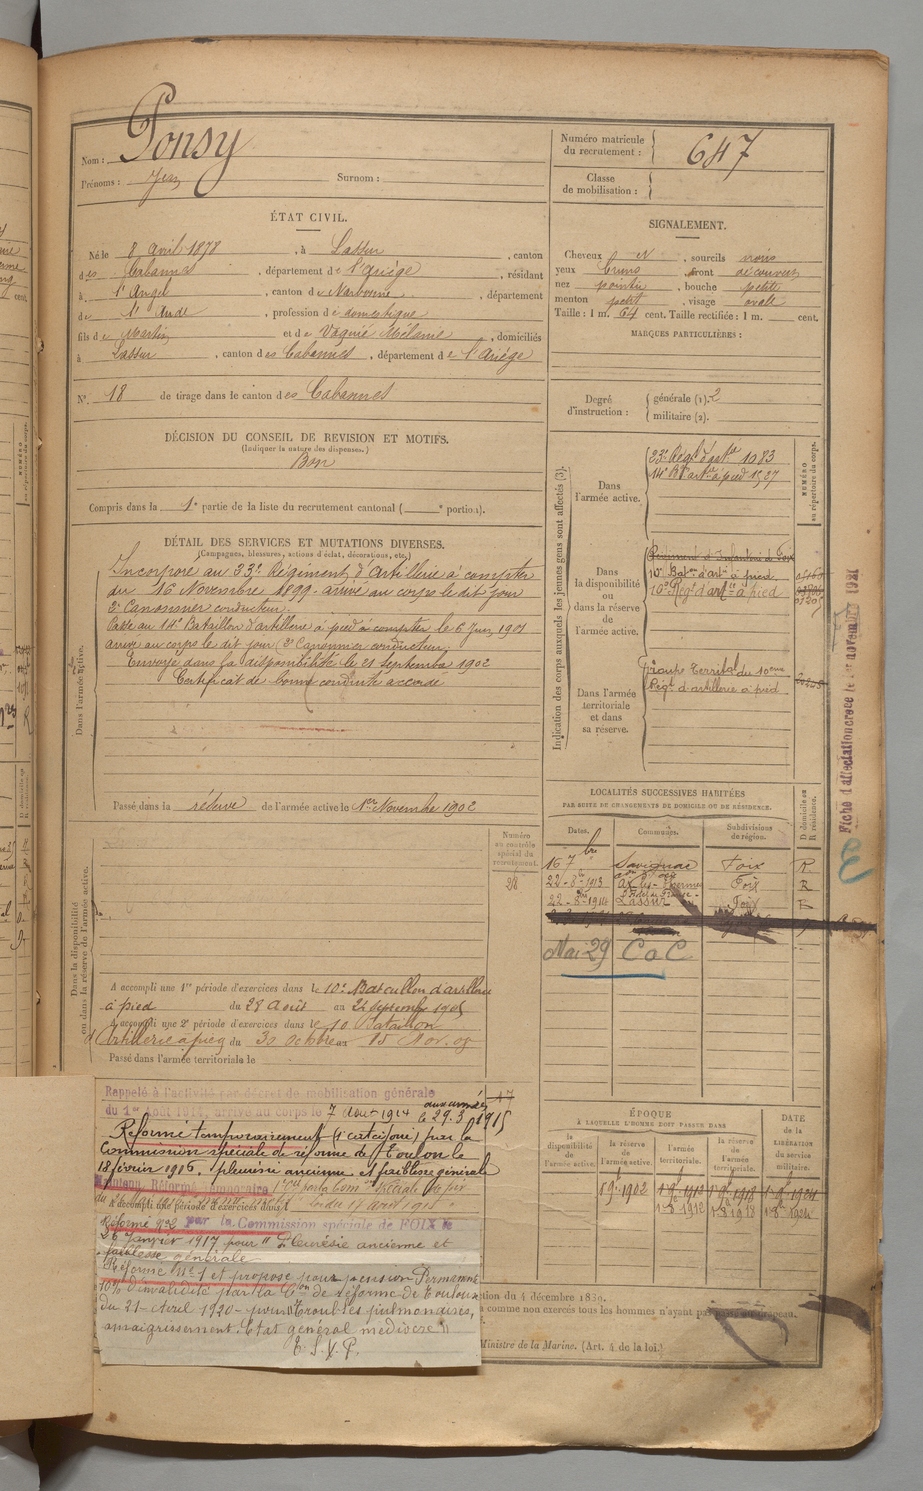 Nom : Ponsy
Prénoms : Jean Surnom :
Numéro matricule du recrutement : 647
Classe de mobilisation :
ÉTAT CIVIL.
Né le 8 Avril 1878, à Lassur, canton
des Cabannes, département de l'Ariège, résidant
à St Angel, canton de Narbonne, département
de l'Aude, profession de domestique
fils de Martin et de Vaquié Mélanie, domiciliés
à Lassur, canton des Cabannes, département de l'Ariège
N° 18 de tirage dans le canton des Cabannes
SIGNALEMENT.
Cheveux N, sourcils noirs
yeux bruns, front découvert
nez pointu, bouche petite
menton petit, visage ovale
Taille : 1 m. 64 cent. Taille rectifiée : 1 m. cent.
MARQUES PARTICULIÈRES :
Degré d'instruction : générale (1). 2
militaire (2).
DÉCISION DU CONSEIL DE REVISION ET MOTIFS.
(Indiquer la nature des dispenses.)
Bon
Compris dans la 1e partie de la liste du recrutement cantonal ( e portion).
DÉTAIL DES SERVICES ET MUTATIONS DIVERSES.
(Campagnes, blessures, actions d'éclat, décorations, etc.)
Dans l'armée active.
Incorporé au 23e Régiment d'Artillerie à compter
du 16 Novembre 1899. arrivé au corps le dit jour
2e Canonnier conducteur.
Passé au 14e Bataillon d'artillerie à pied à compter le 6 Juin 1901
arrivé au corps le dit jour, 2e Canonnier conducteur.
Envoyé dans la disponibilité le 21 Septembre 1902
Certificat de bonne conduite accordé
Passé dans la réserve de l'armée active le 1er Novembre 1902
Indication des corps auxquels les jeunes gens sont affectés (3).
NUMÉRO au répertoire du corps.
Dans l'armée active.
23e Régt d'artie 1083
14e Bon artie à pied 1527
Dans la disponibilité ou dans la réserve de l'armée active.
Régiment d'Infanterie de Foix
10e Baton d'artie à pied
10e Régt d'artie à pied
Dans l'armée territoriale et dans sa réserve.
Groupe Territal du 10eme
Régt d'artillerie à pied
Fiche d'affectation créée le 1er novembre 1921
LOCALITÉS SUCCESSIVES HABITÉES
PAR SUITE DE CHANGEMENTS DE DOMICILE OU DE RÉSIDENCE.
Dates. Communes. Subdivisions de région. D domicile ou R résidence.
16 7bre Savignac Foix R
22-8-1913 Ax-les-Thermes Foix R
22-8-1914 Lassur Foix R
Mai 29 CaC
Dans la disponibilité ou dans la réserve de l'armée active.
Numéro au contrôle spécial du recrutement.
28
A accompli une 1re période d'exercices dans le 10e Bataillon d'artillerie
à pied du 28 Août au 24 septembre 1905
A accompli une 2e période d'exercices dans le 10 Bataillon
d'Artillerie à pied du 30 Octobre au 15 Nov. 08
Passé dans l'armée territoriale le
Rappelé à l'activité par décret de mobilisation générale
du 1er Août 1914, arrivé au corps le 7 Août 1914 aux armées le 29.3.1915
Réformé temporairement (1e catégorie) par la
Commission spéciale de réforme de Toulon le
18 février 1916. pleurésie ancienne et faiblesse générale
Maintenu Réformé temporaire
A accompli une période d'exercices dans l
Réformé n°2 par la Commission spéciale de FOIX le
26 janvier 1917 pour "Pleurésie ancienne et
faiblesse générale
Réformé N°1 et proposé pour pension Permanente
10% d'invalidité par la Con de réforme de Toulouse
du 21 Avril 1920 - pour "Troubles pulmonaires,
amaigrissement. Etat général médiocre"
T. S. V. P.
ÉPOQUE
À LAQUELLE L'HOMME DOIT PASSER DANS
la disponibilité de l'armée active. la réserve de l'armée active. l'armée territoriale. la réserve de l'armée territoriale.
DATE de la LIBÉRATION du service militaire.
1 9bre 1902 1 9bre 1912 1 9bre 1918 1 9bre 1924
1 8bre 1912 1 8bre 1918 1 8bre 1924
ction du 4 décembre 1889.
Ministre de la Marine. (Art. 4 de la loi.)